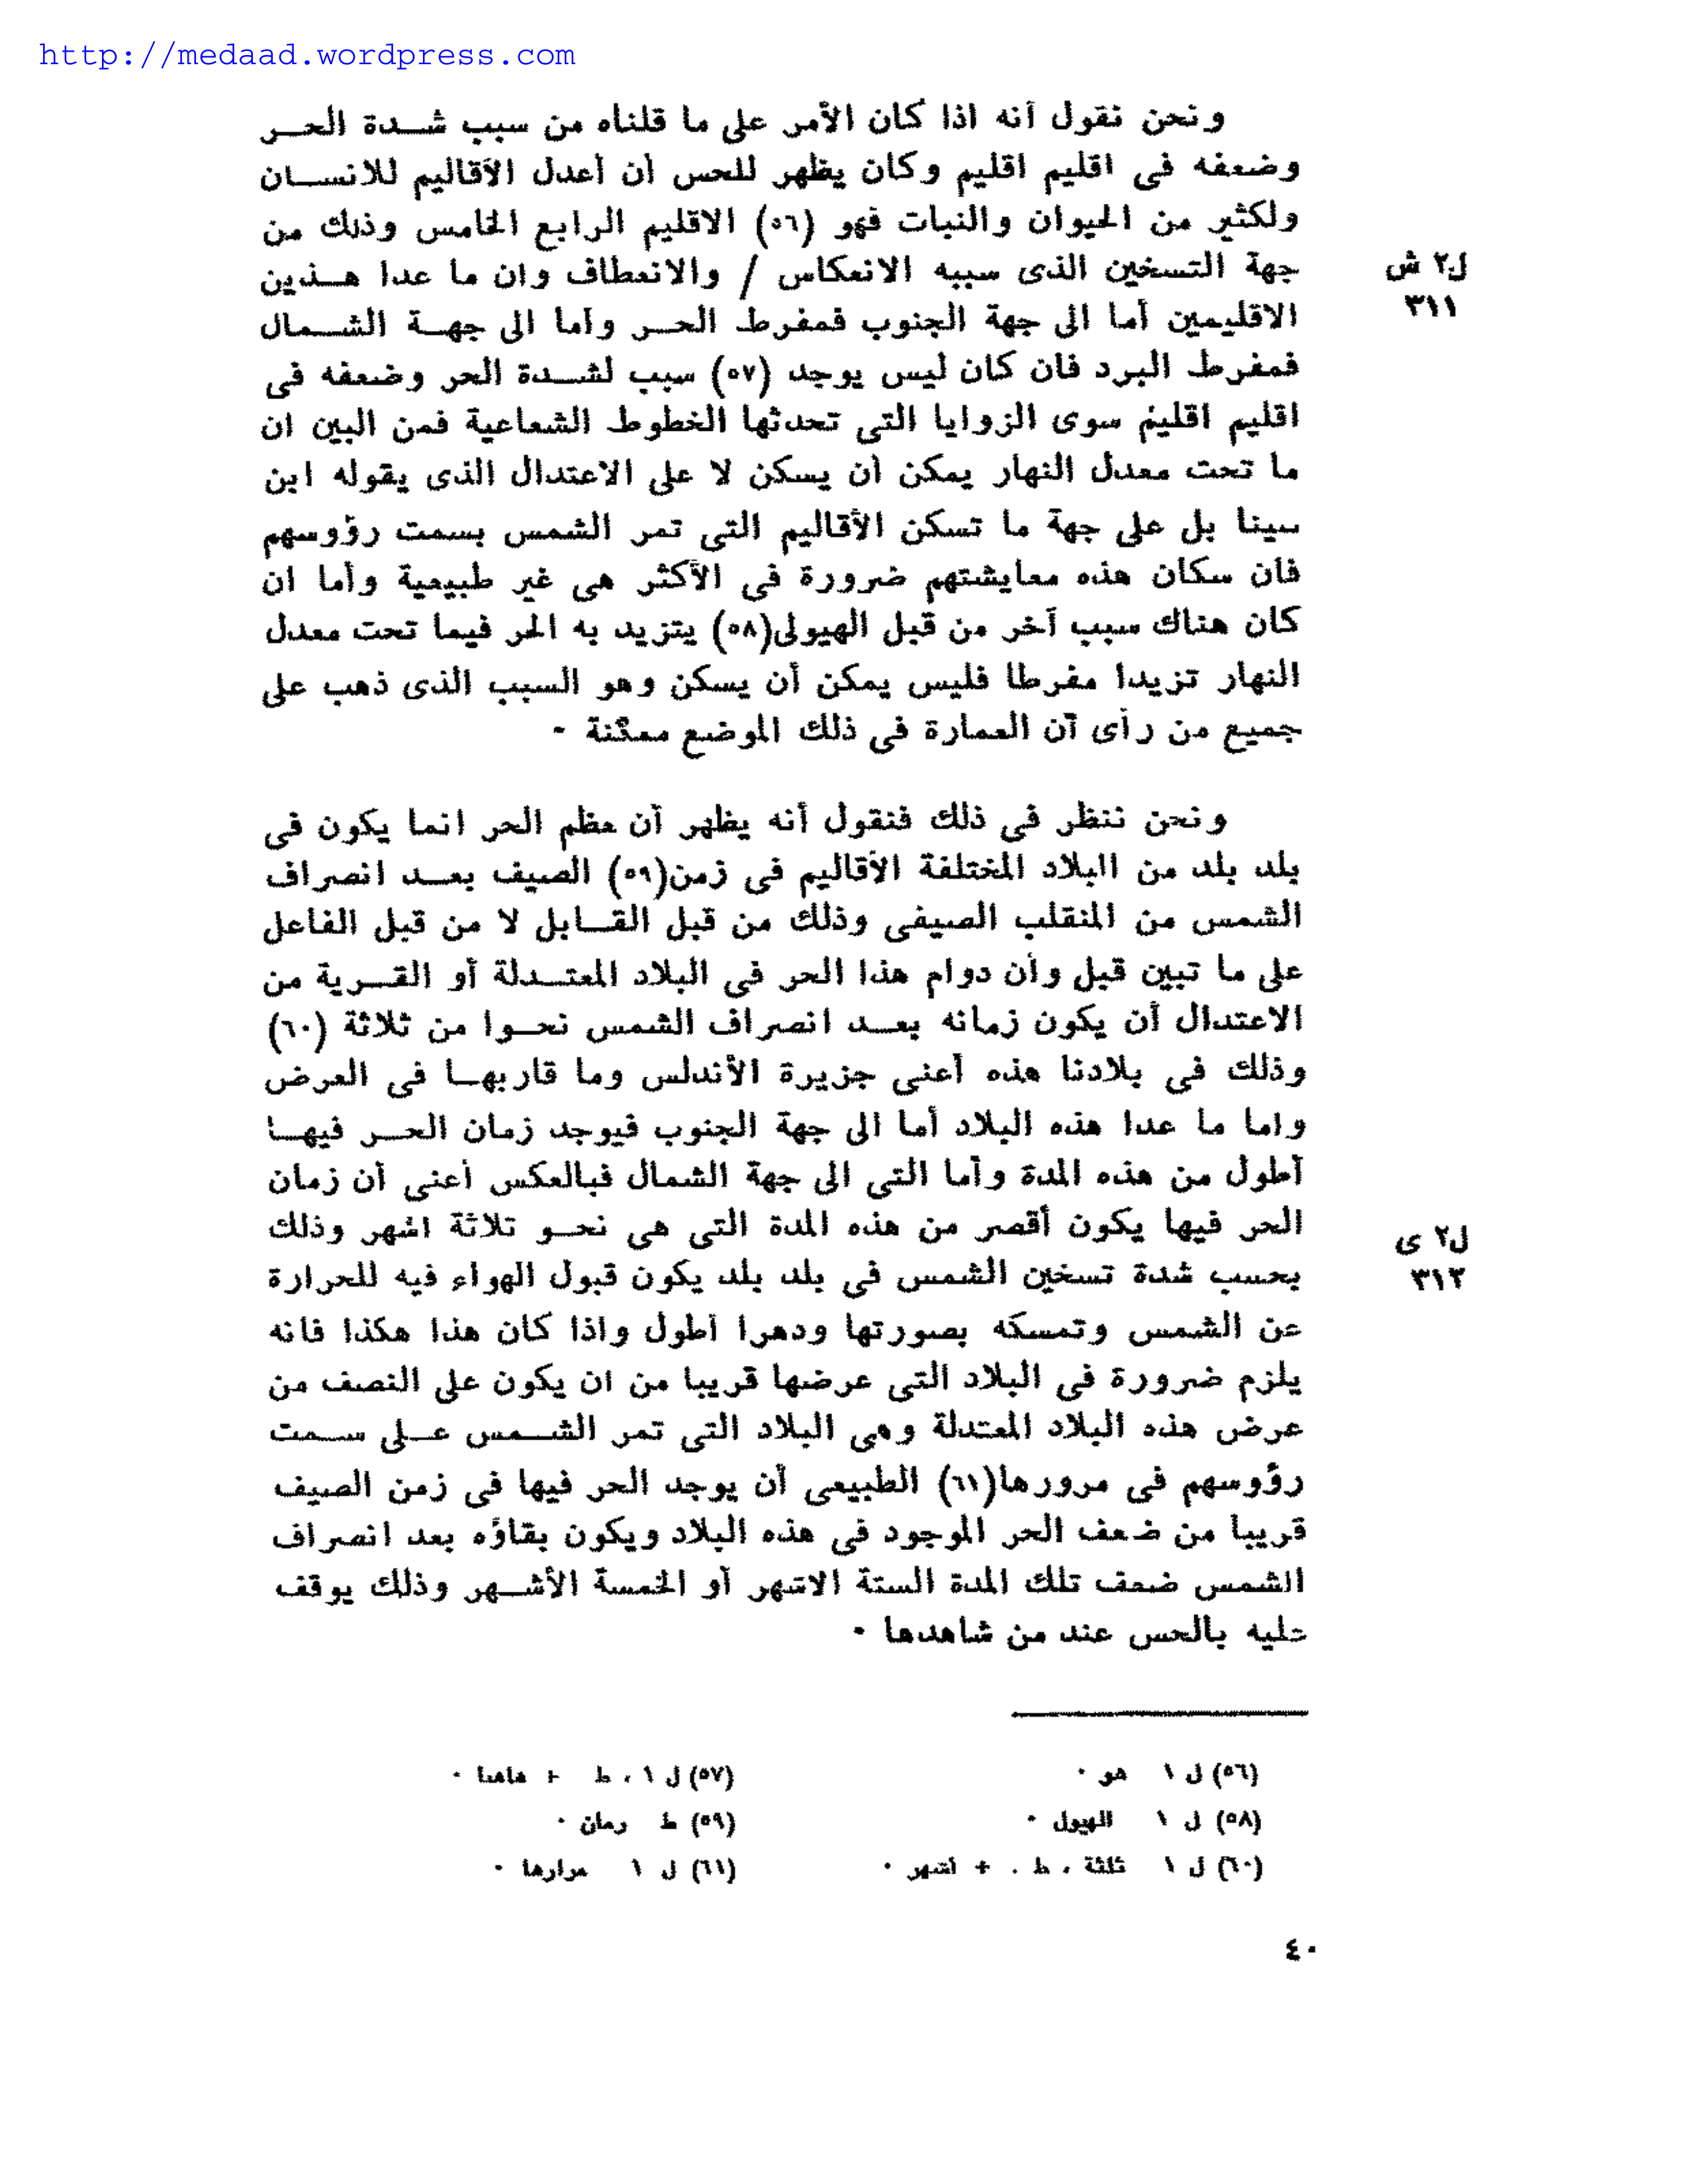 http://medaad.wordpress.com
ونحن نقول أنه اذا كان الأمر على ما قلناه من سبب شدة الحر
وضعفه فى اقليم اقليم وكان يظهر للحس أن أعدل الأقاليم للانسان
ولكثير من الحيوان والنبات فهو (٥٦) الاقليم الرابع الخامس وذلك من
جهة التسخين الذى سببه الانعكاس / والانعطاف وان ما عدا هذين
ل٢ ش
الاقليمين أما الى جهة الجنوب فمفرط الحر وأما الى جهة الشمال
٣١١
فمفرط البرد فان كان ليس يوجد (٥٧) سبب لشدة الحر وضعفه فى
اقليم اقليم سوى الزوايا التى تحدثها الخطوط الشعاعية فمن البين ان
ما تحت معدل النهار يمكن أن يسكن لا على الاعتدال الذى يقوله ابن
سينا بل على جهة ما تسكن الأقاليم التى تمر الشمس بسمت رؤوسهم
فان سكان هذه معايشتهم ضرورة فى الأكثر هى غير طبيعية وأما ان
كان هناك سبب آخر من قبل الهيولى(٥٨) يتزيد به الحر فيما تحت معدل
النهار تزيدا مفرطا فليس يمكن أن يسكن وهو السبب الذى ذهب على
جميع من رأى أن العمارة فى ذلك الموضع ممكنة ٠
ونحن ننظر فى ذلك فنقول أنه يظهر أن عظم الحر انما يكون فى
بلد بلد من البلاد المختلفة الأقاليم فى زمن(٥٩) الصيف بعد انصراف
الشمس من المنقلب الصيفى وذلك من قبل القابل لا من قبل الفاعل
على ما تبين قبل وأن دوام هذا الحر فى البلاد المعتدلة أو القرية من
الاعتدال أن يكون زمانه بعد انصراف الشمس نحوا من ثلاثة (٦٠)
وذلك فى بلادنا هذه أعنى جزيرة الأندلس وما قاربها فى العرض
واما ما عدا هذه البلاد أما الى جهة الجنوب فيوجد زمان الحر فيها
أطول من هذه المدة وأما التى الى جهة الشمال فبالعكس أعنى أن زمان
الحر فيها يكون أقصر من هذه المدة التى هى نحو ثلاثة اشهر وذلك
ل٢ ى
بحسب شدة تسخين الشمس فى بلد بلد يكون قبول الهواء فيه للحرارة
٣١٢
عن الشمس وتمسكه بصورتها ودهرا أطول واذا كان هذا هكذا فانه
يلزم ضرورة فى البلاد التى عرضها قريبا من ان يكون على النصف من
عرض هذه البلاد المعتدلة وهى البلاد التى تمر الشمس على سمت
رؤوسهم فى مرورها(٦١) الطبيعى أن يوجد الحر فيها فى زمن الصيف
قريبا من ضعف الحر الموجود فى هذه البلاد ويكون بقاؤه بعد انصراف
الشمس ضعف تلك المدة الستة الاشهر أو الخمسة الأشهر وذلك يوقف
عليه بالحس عند من شاهدها ٠
(٥٦) ل ١ هو ٠
(٥٧) ل ١ ، ط + هاهنا ٠
(٥٨) ل ١ الهيول ٠
(٥٩) ط زمان ٠
(٦٠) ل ١ ثلثة ، ط . + أشهر ٠
(٦١) ل ١ مرارها ٠
٤٠